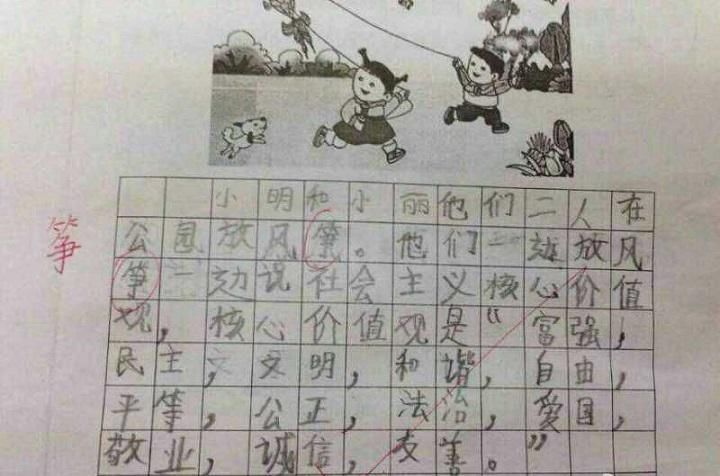 小明和小丽他们二人在
公园放风筝。他们一边放风
筝一边说社会主义核心价值
观，核心价值观是“富强，
民主，文明，和谐，自由，
平等，公正，法治，爱国，
敬业，诚信，友善。”
筝